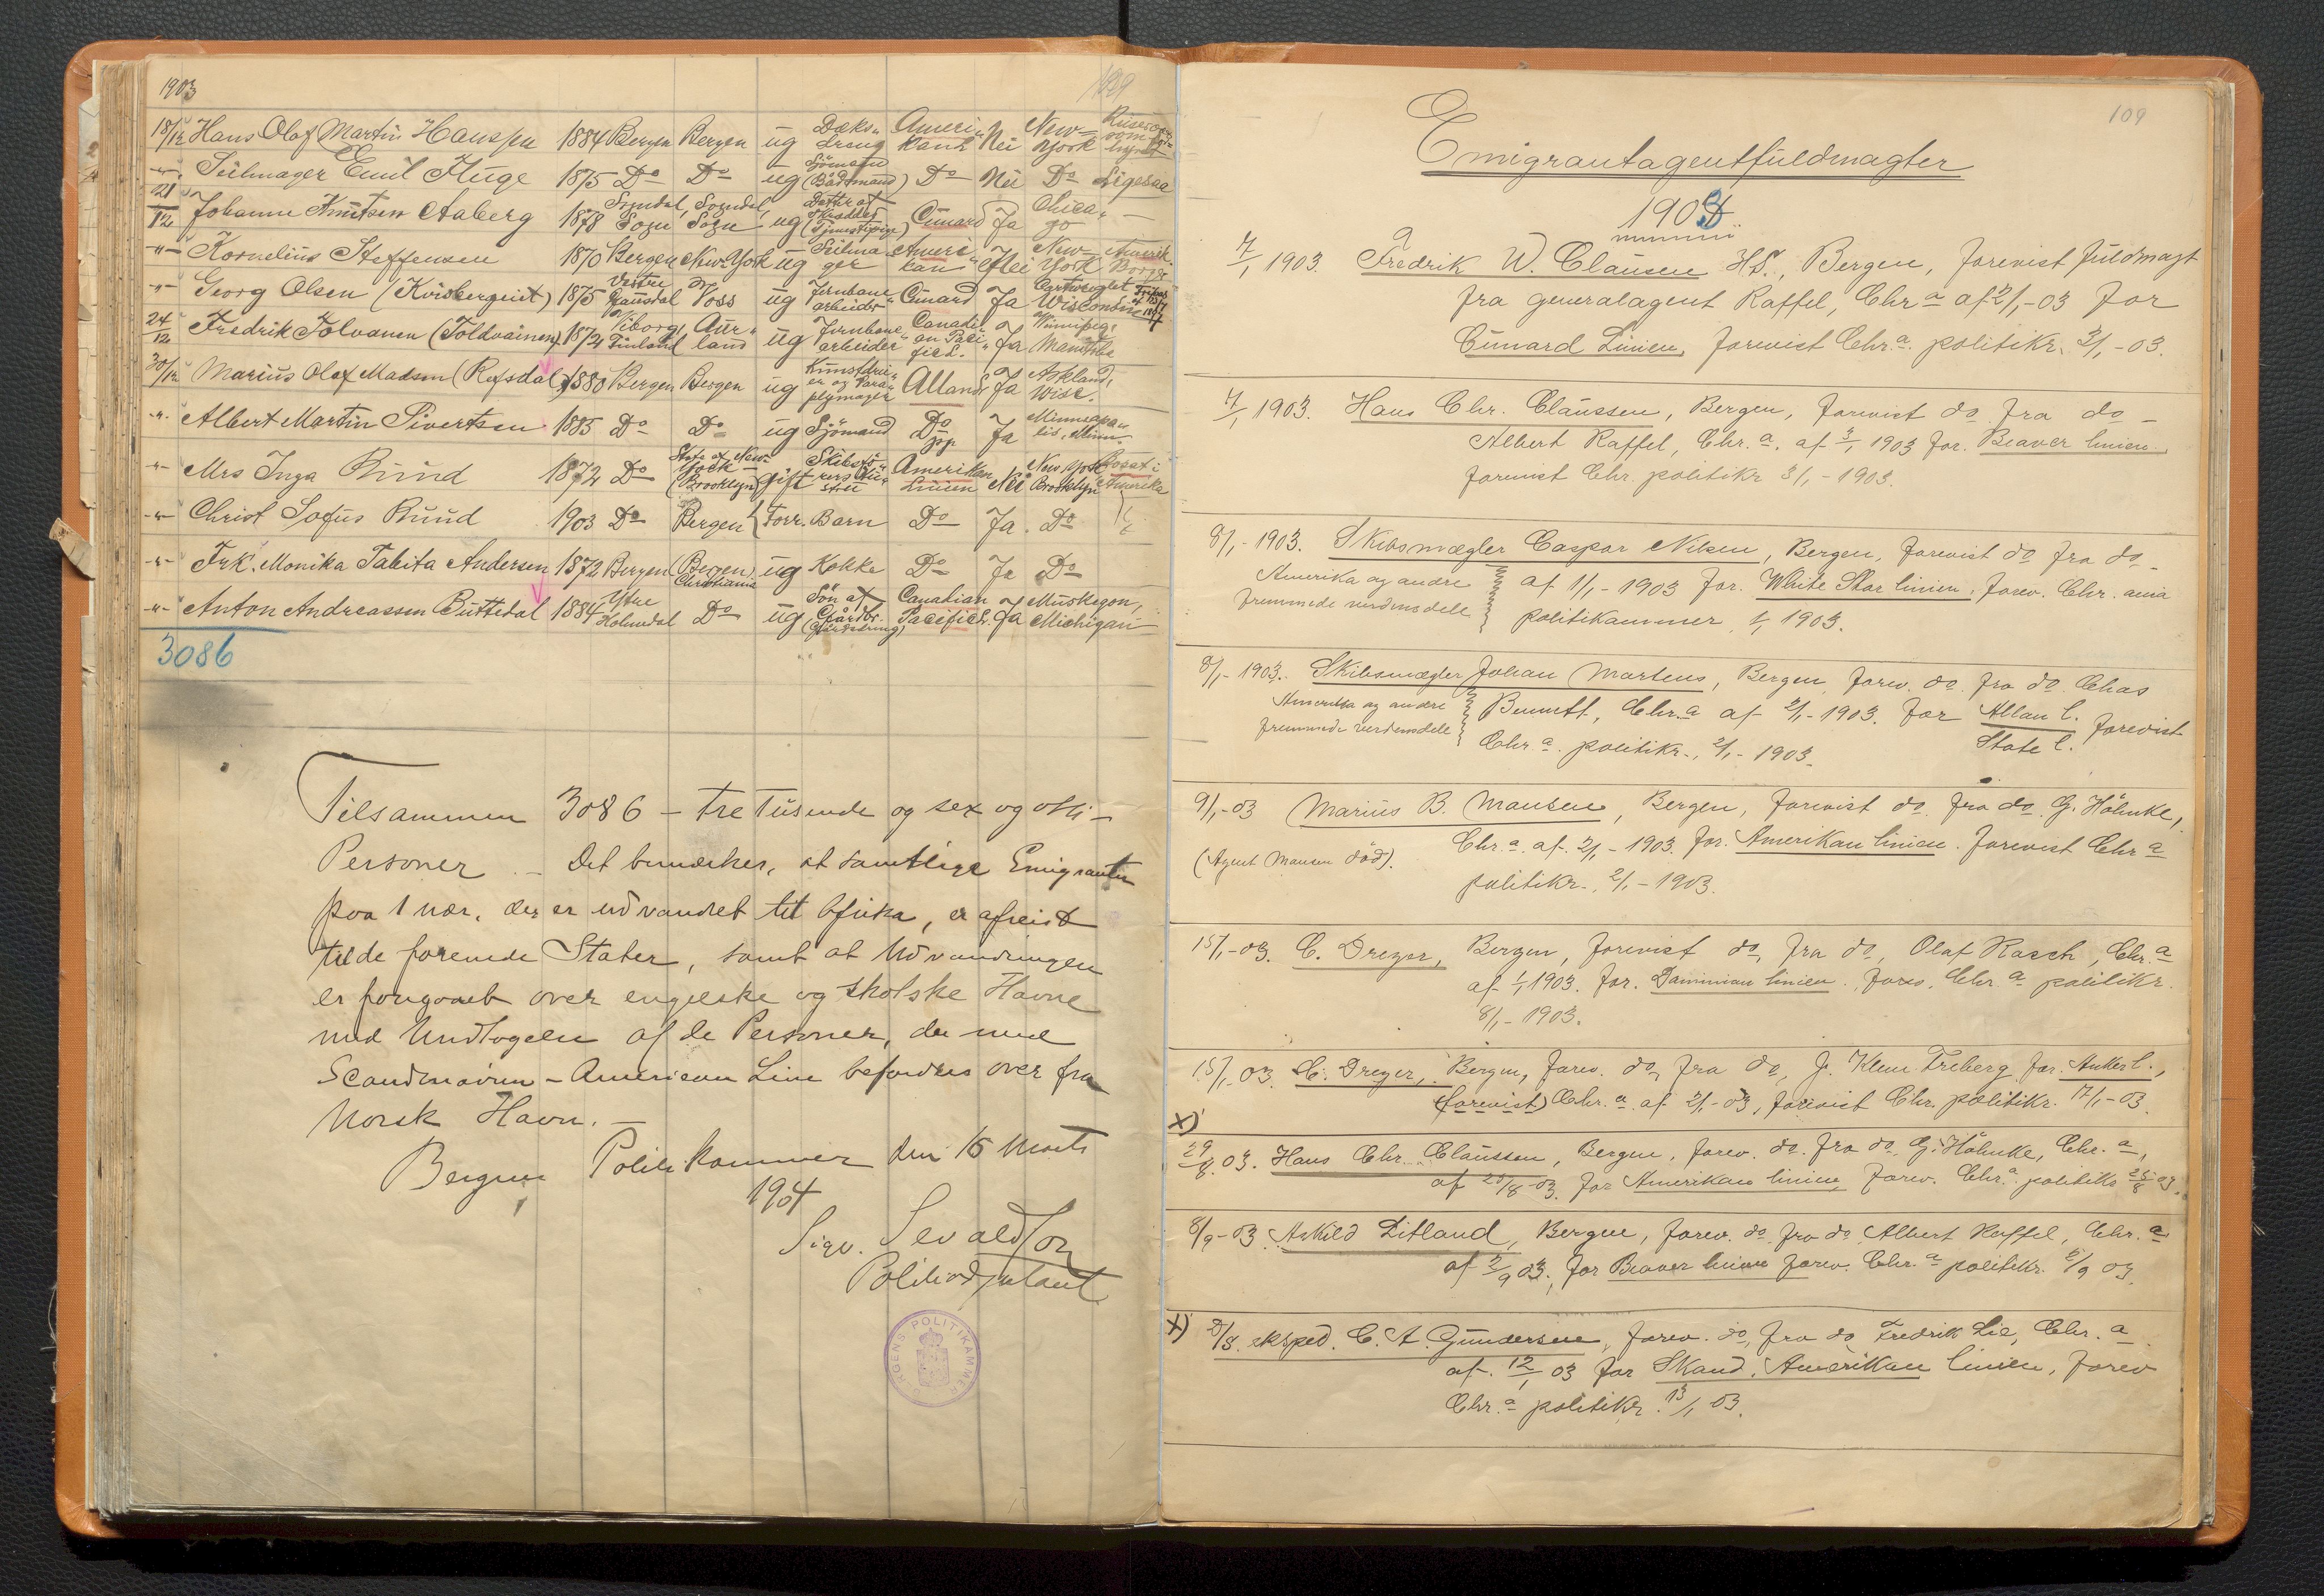 1903
18/12 Hans Olaf Martin Hanssen 1884 Bergen Bergen ug Dæksdreng Amerikansk Nei New-York
-"- Seilmager Emil Huge 1875 Do Do ug Sjömann (Baadsmand) Do Nei Do Ligesaa
21/12 Johanne Knutsen Aaberg 1878 Sogndal, Sogn Sogndal, Sogn ug Datter af (Tjenestepige) Cunard Ja Chicago —
-"- Kornelius Steffensen 1870 Bergen New-York ug Seilmager Amerikan Nei New York Amerik. Borger
-"- Georg Olsen (Kvisbergeiet) 1875 Vestre Gausdal Voss ug Jernbanearbeider Cunard Ja Wisconsin
24/12 Fredrik Tolvanen (Toldvainen) 1872 Viborg, Finland Aurland ug Jernbanearbeider Canadian Pacific L. Ja Winnipeg, Manitoba
30/12 Marius Olaf Madsen (Refsdal) 1880 Bergen Bergen ug Kunstdreier og Paraplymager Allanl. Ja Askland, Wisc.
-"- Albert Martin Sivertsen 1885 Do Do ug Sjömand Do Ja Minneapolis, Minn.
-"- Mrs Inga Ruud 1872 Do State of New-York (Brooklyn) gift Skibsförers Hustru Amerikan Linien Nei New York Brooklyn Bosat i Amerika
-"- Christ Sofus Ruud 1903 Do Bergen Forr. Barn Do Ja Do
-"- Frk. Monika Tabita Andersen 1872 Bergen (Bergen) Christiania ug Kokke Do Ja Do
-"- Anton Andreassen Buttedal 1884 Ytre Holmedal Do ug Sön af Gårdbr. Canadian Pacificl. Ja Muskegon, Michigan
3086
Tilsammen 3086 – tre Tusende og sex og otti –
Personer. – Det bemærkes, at samtlige Emigranter
paa 1 nær, der er udvandret til Afrika, er afreist
til de forenede Stater, samt at Udvandringen
er foregaaet over engelske og skotske Havne
med Undtagelse af de Personer, der med
Scandinavian-American Line befordres over fra
Norsk Havn. –
Bergens Politikammer den 15 Marts
1904
Sigv. Sevaldson
Politiadjutant
BERGENS POLITIKAMMER
109
Emigrantagentfuldmagter
1903
7/1 1903. Fredrik W. Clausen HS., Bergen, forevist fuldmagt
fra generalagent Raffel, Chr.a af 2/1-03 for
Cunard Linien, forevist Chr.a politikr. 3/1-03.
7/1 1903. Hans Chr. Claussen, Bergen, forevist do fra do –
Albert Raffel, Chr.a. af 3/1 1903 for. Beaver linien,
forevist Chr. politikr 3/1-1903.
8/1-1903. Skibsmægler Caspar Nilsen, Bergen, forevist do fra do –
Amerika og andre fremmede verdensdele af 1/1-1903 for. White Star linien. forev. Chr. ania
politikammer 1/1 1903.
8/1-1903. Skibsmægler Johan Martens, Bergen forev. do. fra do. Chas
Amerika og andre fremmede verdensdele Bennett, Chr.a af 2/1-1903. for Allan l. State l. forevist
Chr.a. politikr., 2/1-1903.
9/1-03 Marius B. Mansen, Bergen, forevist do. fra do. G. Höhnke,
(Agent Mansen död). Chr.a. af. 2/1-1903. for. Amerikan linien. forevist Chr a
politikr. 2/1-1903.
15/1-03. C. Dreyer, Bergen, forevist do, fra do, Olaf Rasch, Chr.a
af 1/1 1903. for. Dominian linien. forev. Chr.a politikr.
8/1-1903.
15/1.03. C. Dreyer, Bergen, forev. do, fra do, J. Klem Treberg for. Ankerl.,
(forevist) Chr.a. af 2/1-03, forevist Chr. politikr. 17/1-03.
x)
29/8.03. Hans Chr. Claussen, Bergen, forev. do. fra do. G. Höhnke, Chr.a,
af 25/8-03. for Amerikan linien, forev. Chr.a politikr 25/8 03.
8/9-03 Askild Ditland, Bergen, forev. do fra do Albert Raffel, Chr.a
af 2/9 03., for Beaver linien forev. Chr.a politikr. 5/9 03.
x) eksped. C. A. Gundersen, forev. do, fra do Fredrik Lie, Chr. a
af. 12/1 03 for Skand. Amerikan linien, forev
Chr.a politikr. 13/1 03.